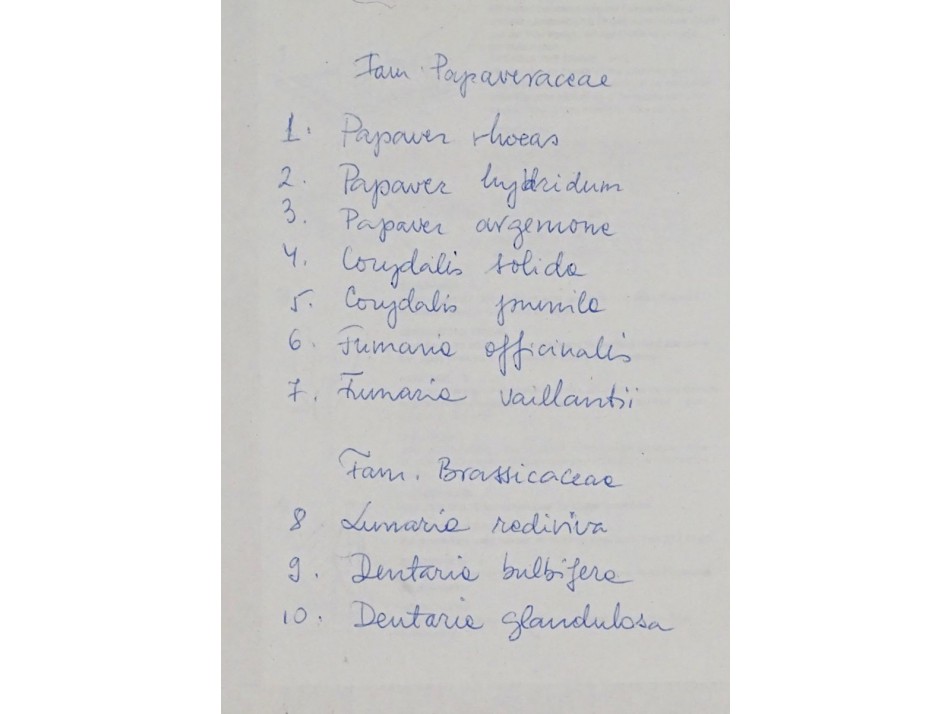 Fam. Papaveraceae
1. Papaver rhoeas
2. Papaver hybridum
3. Papaver argemone
4. Corydalis solida
5. Corydalis pumila
6. Fumaria officinalis
7. Fumaria vaillantii
Fam. Brassicaceae
8 Lunaria rediviva
9. Dentaria bulbifera
10. Dentaria glandulosa